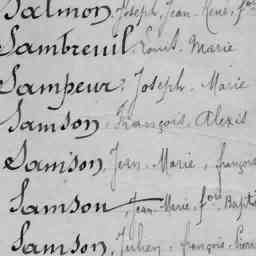 Salmon, Joseph, Jean-René, fois
Sambreuil Louis Marie
Sampeur, Joseph Marie
Samson, François, Alexis
Samson, Jean-Marie, françois
Samson, Jean-Marie, fois Baptis
Samson, Julien, françois, Pierre